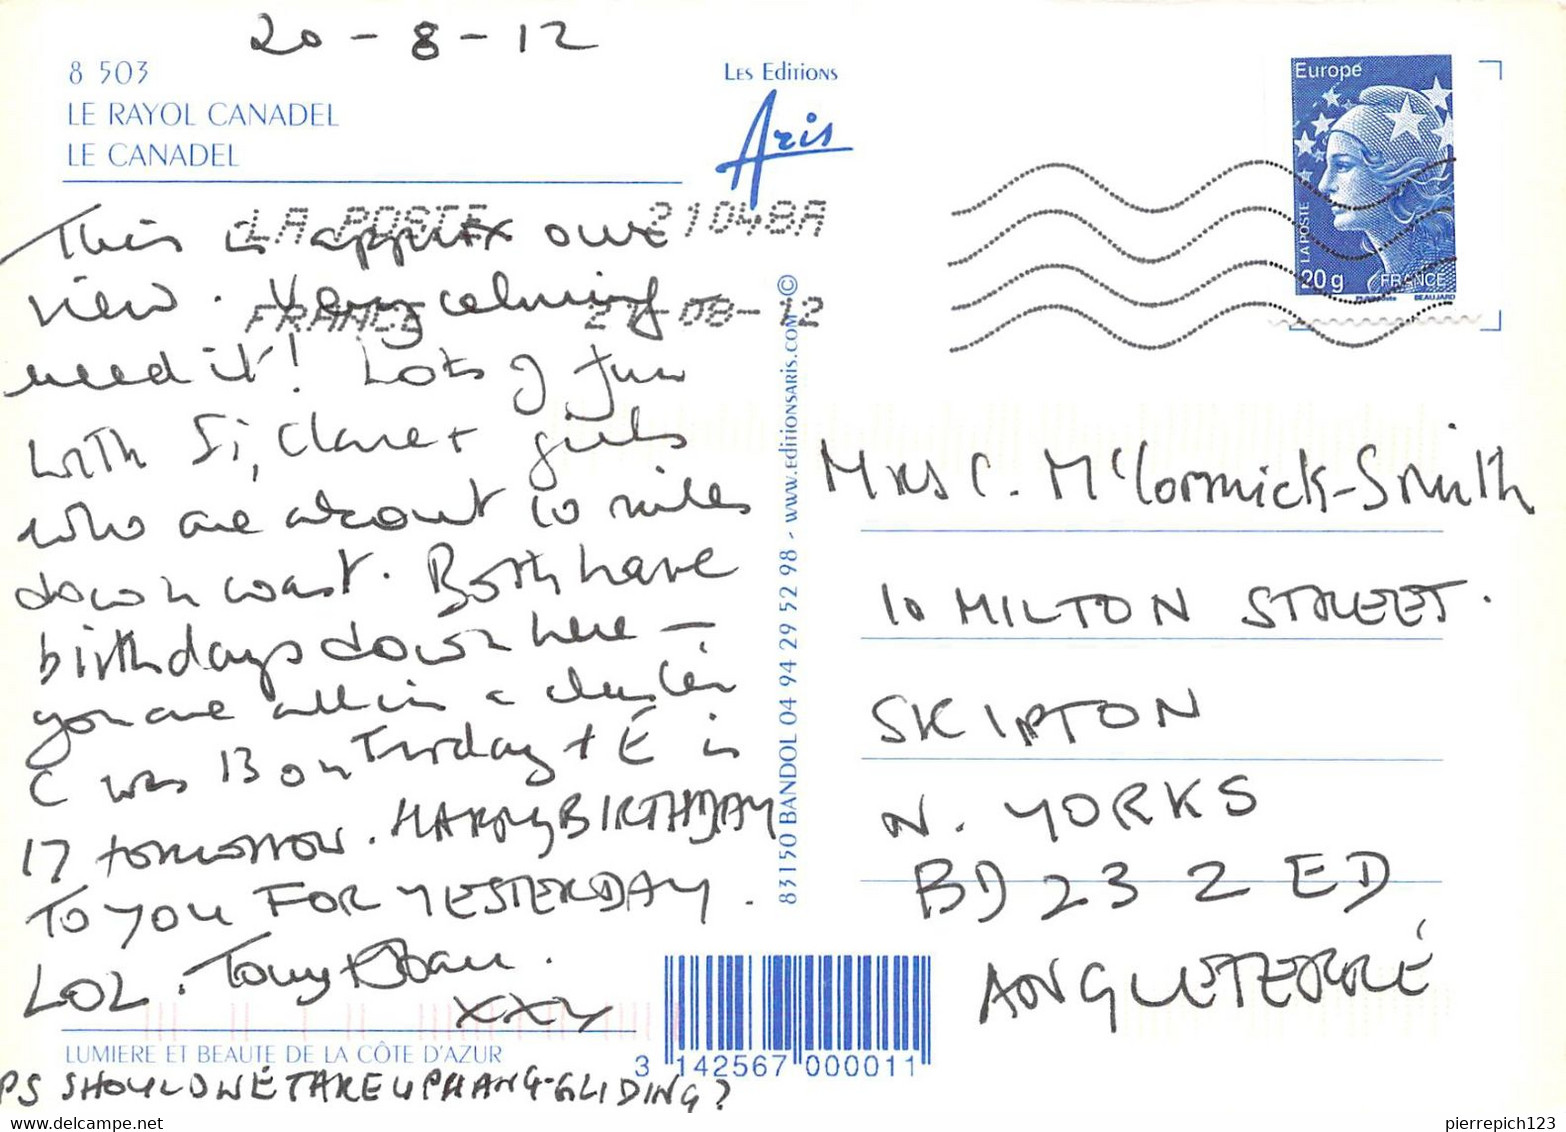 20-8-12
8 503
LE RAYOL CANADEL
LE CANADEL
LES EDITIONS
Aris
Europe
LA POSTE
20g FRANCE
BEAUJARD
LA POSTE 31048A
FRANCE 21-08-12
This is approx our
view. Very calming -
need it! Lots of fun
with Si, Clare + girls
who are about 10 miles
down coast. Both have
birthdays down here -
you are all in a cluster
C was 13 on Tursday + E is
17 tomorrow. HAPPY BIRTHDAY
TO YOU FOR YESTERDAY.
LOL. Tony +
xxx
PS SHOULD WE TAKE UP HANG-GLIDING?
83150 BANDOL 04 94 29 52 98 - WWW.EDITIONSARIS.COM ©
Mrs C. McCormick-Smith
10 MILTON STREET.
SKIPTON
N. YORKS
BD23 2ED
ANGLETERRE
LUMIERE ET BEAUTE DE LA CÔTE D'AZUR
3 142567 000011
pierrepich123